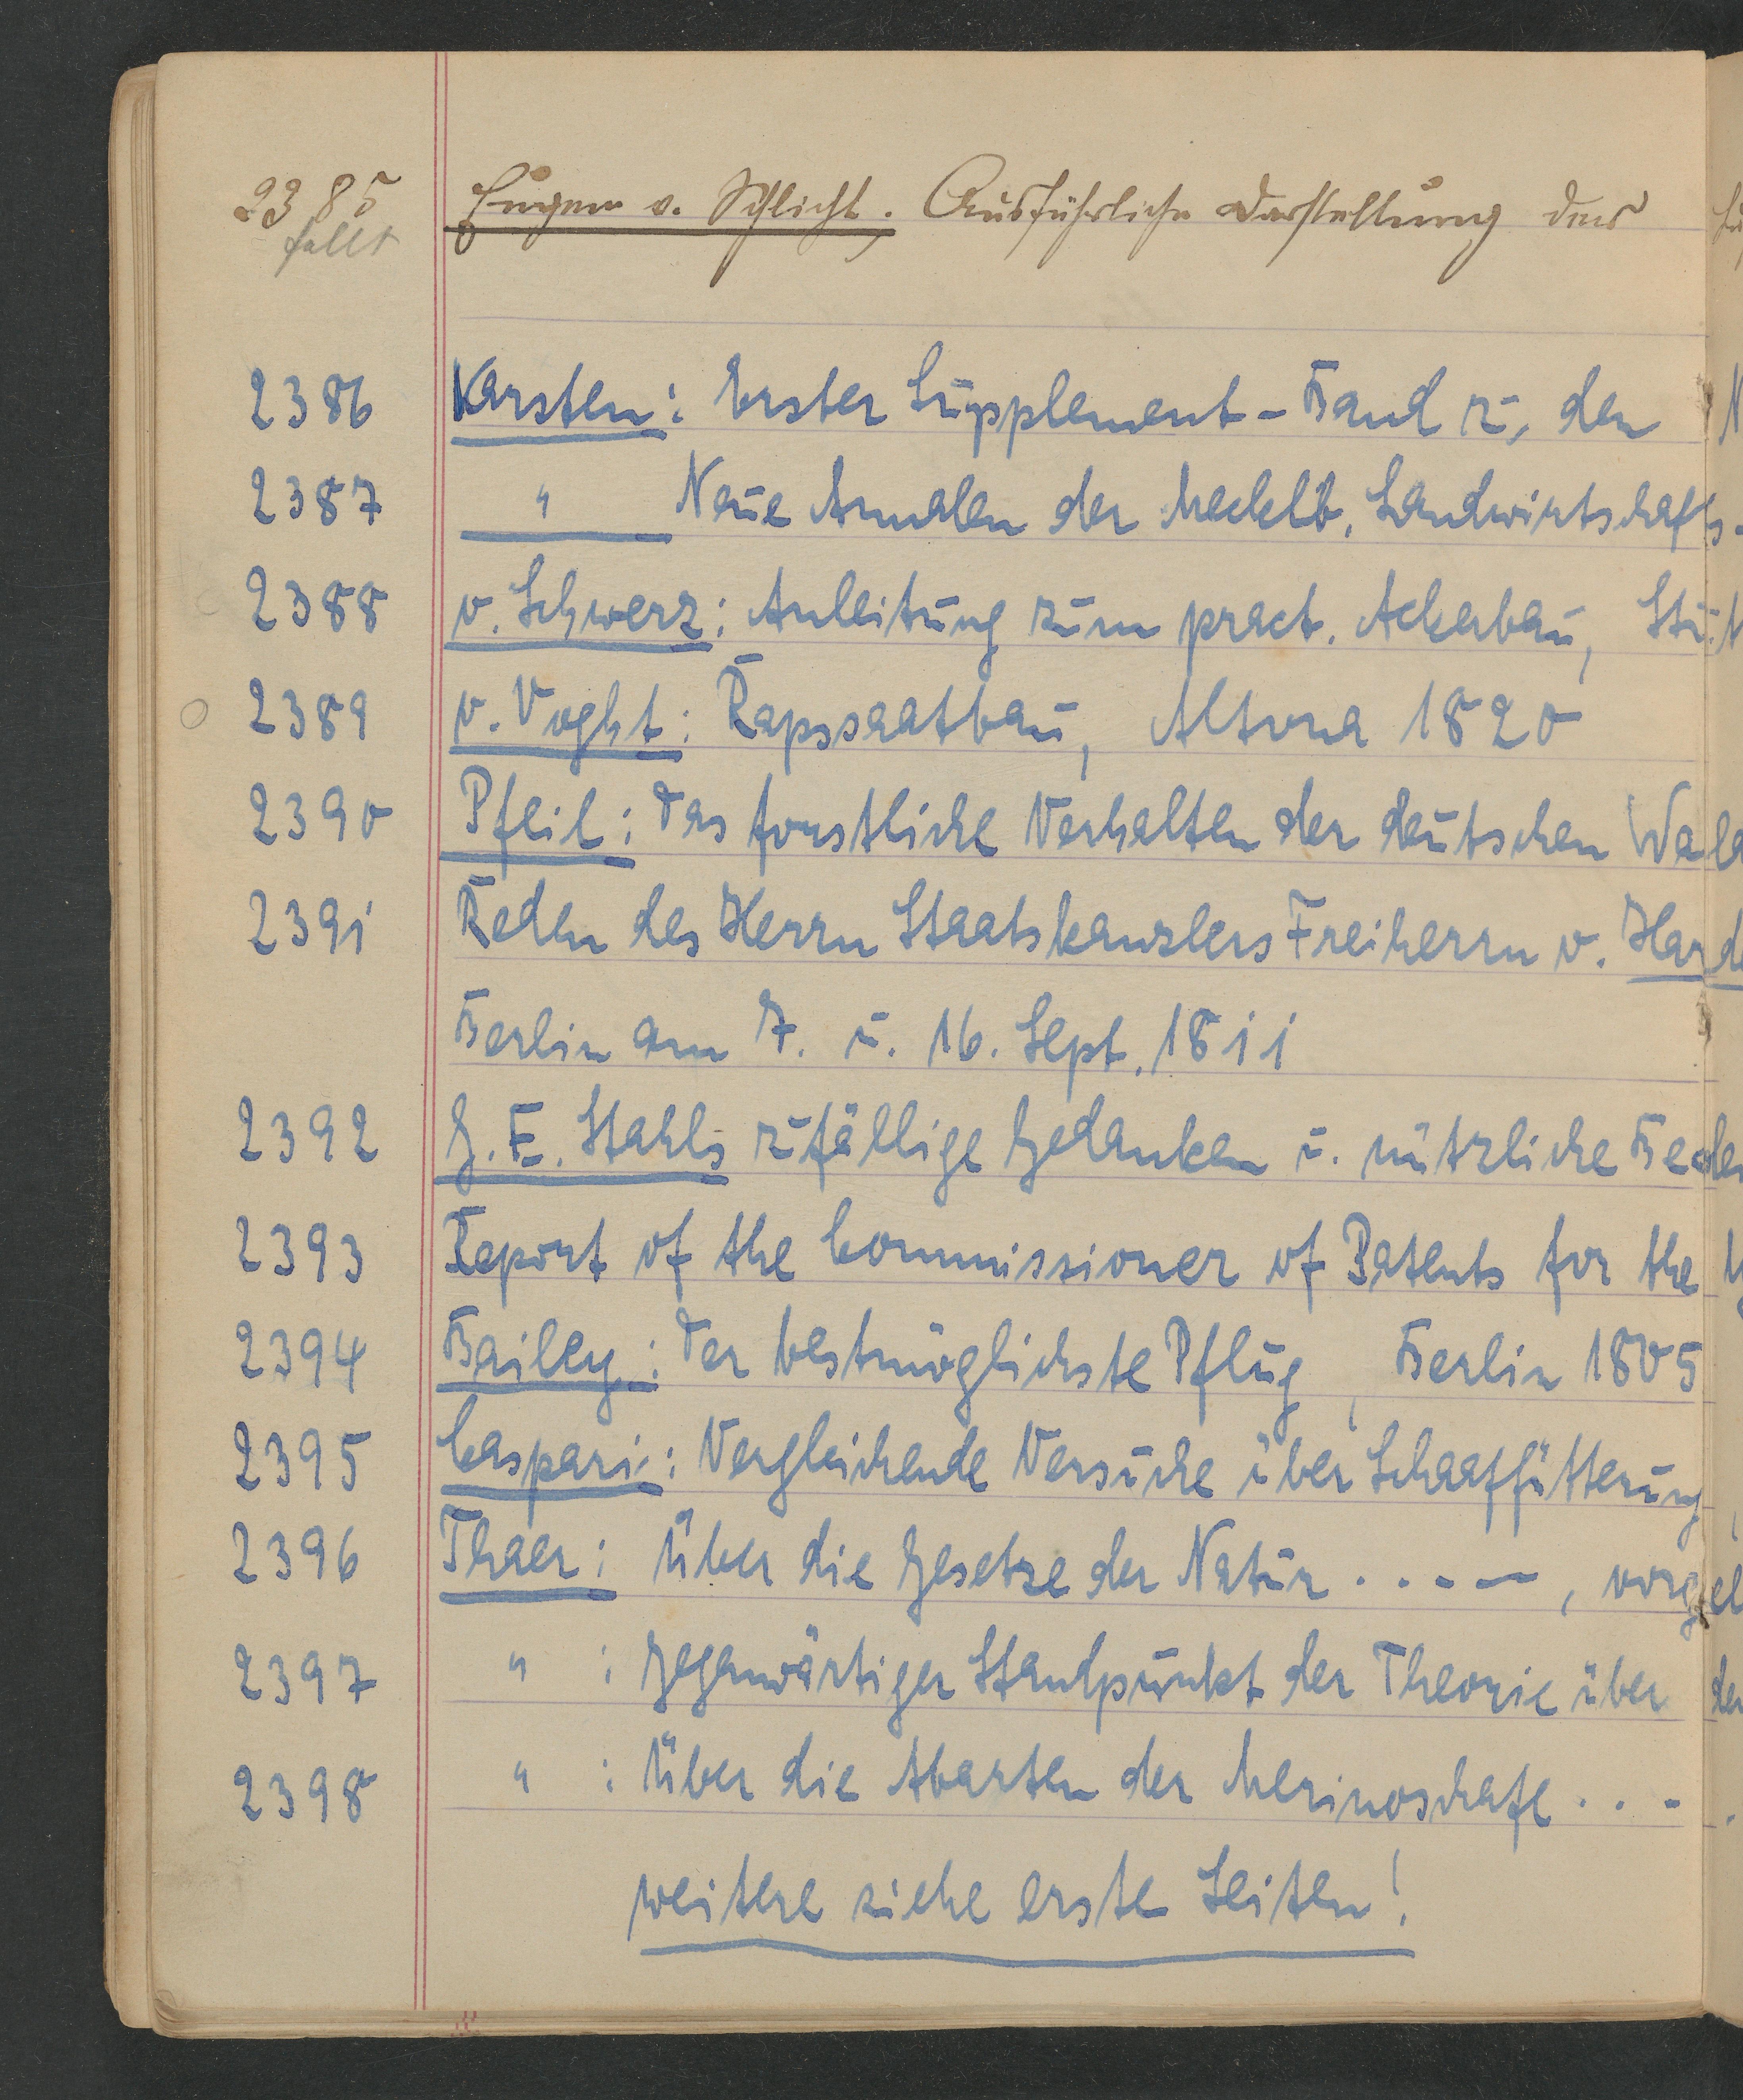 2385 Eugen v. Schlicht. Ausführliche Darstellung des
fehlt
2386 Karsten: Erster Supplement-Band z. den
2387 " Neue Annalen der Mecklb. Landwirtschafts-
2388 v. Schwerz: Anleitung zum pract. Ackerbau, Stut
2389 v. Voght: Rapssaatbau, Altona 1820
2390 Pfeil: Das forstliche Verhalten der deutschen Wald
2391 Reden des Herrn Staatskanzlers Freiherrn v. Harde
Berlin am 7. u. 16. Sept. 1811
2392 G. E. Stahls zufällige Gedanken u. nützliche Beden
2393 Report of the Commissioner of Patents for the
2394 Bailey: Der bestmöglichste Pflug, Berlin 1805
2395 Caspari: Vergleichende Versuche über Schaaffütterung,
2396 Thaer: Über die Gesetze der Natur . . . . —, vorgel
2397 " : Gegenwärtiger Standpunkt der Theorie über der
2398 " : Über die Abarten der Merinoschafe . . . .
weitere siehe erste Seiten!